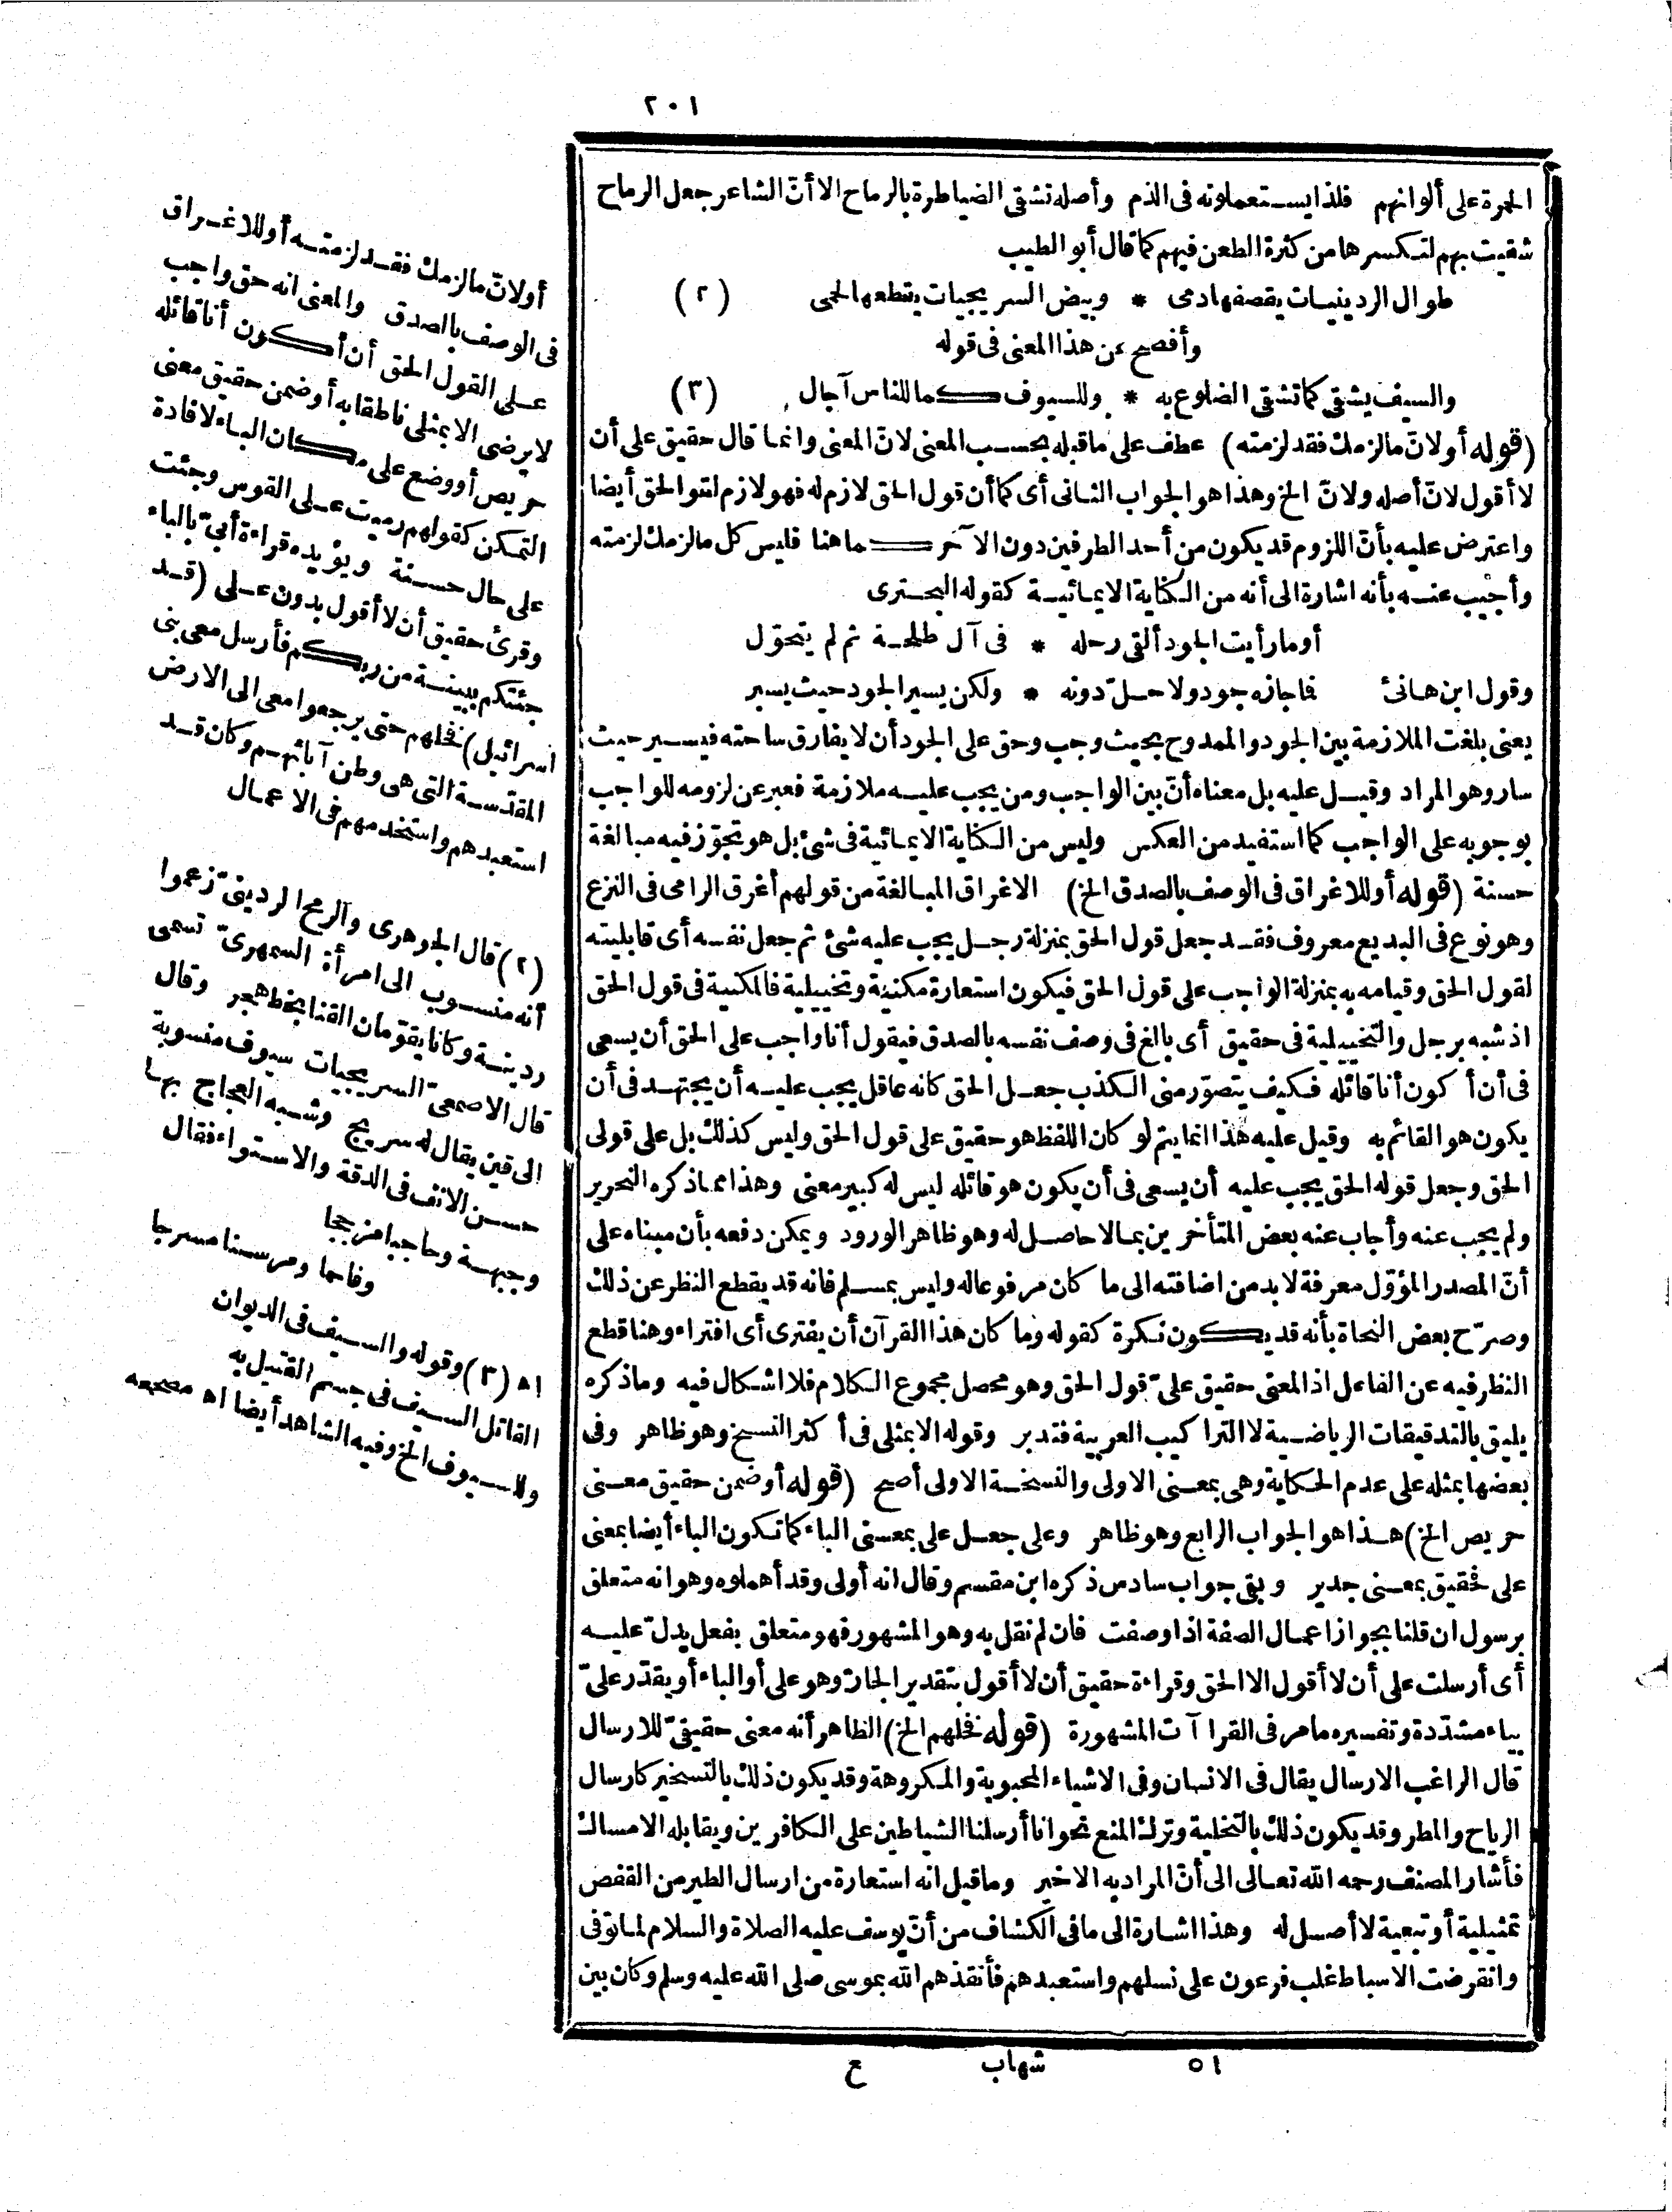 ٢٠١
الحمرة على ألوانهم فلذا يستعملونه فى الذم وأصله تشقى الضياطرة بالرماح الا أنّ الشاعر جعل الرماح
شقيت بهم لتكسرها من كثرة الطعن فيهم كما قال أبو الطيب
طوال الردينيات يقصفها دمى * وبيض السريجيات يقطعها لحمى (٢)
وأفصح عن هذا المعنى فى قوله
والسيف يشقى كما تشقى الضلوع به * وللسيوف كما للناس آجال (٣)
(قوله أو لانّ ما لزمك فقد لزمته) عطف على ما قبله بحسب المعنى لانّ المعنى وانما قال حقيق على أن
لا أقول لانّ أصله ولانّ الخ وهذا هو الجواب الثانى أى كما أن قول الحق لازم له فهو لازم لقول الحق أيضا
واعترض عليه بأنّ اللزوم قد يكون من أحد الطرفين دون الآخر كما هنا فليس كل ما لزمك لزمته
وأجيب عنه بأنه اشارة الى أنه من الكناية الايمائية كقوله البحترى
أوما رأيت الجود ألقى رحله * فى آل طلحة ثم لم يتحوّل
وقول ابن هانئ فما جازه جود ولا حلّ دونه * ولكن يسير الجود حيث يسير
يعنى بلغت الملازمة بين الجود والممدوح بحيث وجب وحق على الجود أن لا يفارق ساحته فيسير حيث
سار وهو المراد وقيل عليه بل معناه أنّ بين الواجب ومن يجب عليه ملازمة فعبر عن لزومه للواجب
بوجوبه على الواجب كما استفيد من العكس وليس من الكناية الايمائية فى شئ بل هو تجوّز فيه مبالغة
حسنة (قوله أو للاغراق فى الوصف بالصدق الخ) الاغراق المبالغة من قولهم أغرق الرامى فى النزع
وهو نوع فى البديع معروف فقد جعل قول الحق بمنزلة رجل يجب عليه شئ ثم جعل نفسه أى قابليته
لقول الحق وقيامه به بمنزلة الواجب على قول الحق فيكون استعارة مكنية وتخييلية فالمكنية فى قول الحق
اذ شبه برجل والتخييلية فى حقيق أى بالغ فى وصف نفسه بالصدق فيقول أنا واجب على الحق أن يسعى
فى أن أكون أنا قائله فكيف يتصوّر منى الكذب جعل الحق كانه عاقل يجب عليه أن يجتهد فى أن
يكون هو القائم به وقيل عليه هذا انما يتم لو كان اللفظ هو حقيق على قول الحق وليس كذلك بل على قولى
الحق وجعل قوله الحق يجب عليه أن يسعى فى أن يكون هو قائله ليس له كبير معنى وهذا مما ذكره النحرير
ولم يجب عنه وأجاب عنه بعض المتأخرين بما لا حاصل له وهو ظاهر الورود ويمكن دفعه بأن مبناه على
أنّ المصدر المؤوّل معرفة لابد من اضافته الى ما كان مرفوعا له وليس بمسلم فانه قد يقطع النظر عن ذلك
وصرّح بعض النحاة بأنه قد يكون نكرة كقوله وما كان هذا القرآن أن يفترى أى افتراء وهنا قطع
النظر فيه عن الفاعل اذ المعنى حقيق علىّ قول الحق وهو محصل مجموع الكلام فلا اشكال فيه وما ذكره
يليق بالتدقيقات الرياضية لا التراكيب العربية فتدبر وقوله الا بمثلى فى أكثر النسخ وهو ظاهر وفى
بعضها بمثله على عدم الحكاية وهى بمعنى الاولى والنسخة الاولى أصح (قوله أو ضمن حقيق معنى
حريص الخ) هذا هو الجواب الرابع وهو ظاهر وعلى جعل على بمعنى الباء كما تكون الباء أيضا بمعنى
على فحقيق بمعنى جدير وبقى جواب سادس ذكره ابن مقسم وقال انه أولى وقد أهملوه وهو انه متعلق
برسول ان قلنا بجواز اعمال الصفة اذا وصفت فان لم نقل به وهو المشهور فهو متعلق بفعل يدلّ عليه
أى أرسلت على أن لا أقول الا الحق وقراءة حقيق أن لا أقول بتقدير الجارّ وهو على أو الباء أو يقدّر علىّ
بياء مشدّدة وتفسيره ما مر فى القراآت المشهورة (قوله فخلهم الخ) الظاهر أنه معنى حقيقىّ للارسال
قال الراغب الارسال يقال فى الانسان وفى الاشياء المحبوبة والمكروهة وقد يكون ذلك بالتسخير كارسال
الرياح والمطر وقد يكون ذلك بالتخلية وترك المنع نحو انا أرسلنا الشياطين على الكافرين ويقابله الامساك
فأشار المصنف رحمه الله تعالى الى أنّ المراد به الاخير وما قيل انه استعارة من ارسال الطير من القفص
تمثيلية أو تبعية لا أصل له وهذا اشارة الى ما فى الكشاف من أنّ يوسف عليه الصلاة والسلام لما توفى
وانقرضت الاسباط غلب فرعون على نسلهم واستعبدهم فأنقذهم الله بموسى صلى الله عليه وسلم وكان بين
أو لانّ ما لزمك فقد لزمته أو للاغراق
فى الوصف بالصدق والمعنى انه حق واجب
على القول الحق أن أكون أنا قائله
لا يرضى الا بمثلى ناطقا به أو ضمن حقيق معنى
حريص أو وضع على مكان الباء لافادة
التمكن كقولهم رميت على القوس وجئت
على حال حسنة ويؤيده قراءة أبىّ بالباء
وقرئ حقيق أن لا أقول بدون على (قد
جئتكم ببينة من ربكم فأرسل معى بنى
اسرائيل) فخلهم حتى يرجعوا معى الى الارض
المقدّسة التى هى وطن آبائهم وكان قد
استعبدهم واستخدمهم فى الاعمال
(٢) قال الجوهرى والرمح الردينىّ زعموا
أنه منسوب الى امرأة السمهرىّ تسمى
ردينة وكانا يقوّمان القنا بخط هجر وقال
قال الاصمعىّ السريجيات سيوف منسوبة
الى قين يقال له سريج وشبه العجاج بها
حسن الانف فى الدقة والاستواء فقال
وجبهة وحاجبا مزججا
وفاحما ومرسنا مسرجا
اه (٣) وقوله والسيف فى الديوان
القاتل السيف فى جسم القتيل به
وللسيوف الخ وفيه الشاهد أيضا اه مصححه
٥١ شهاب ع